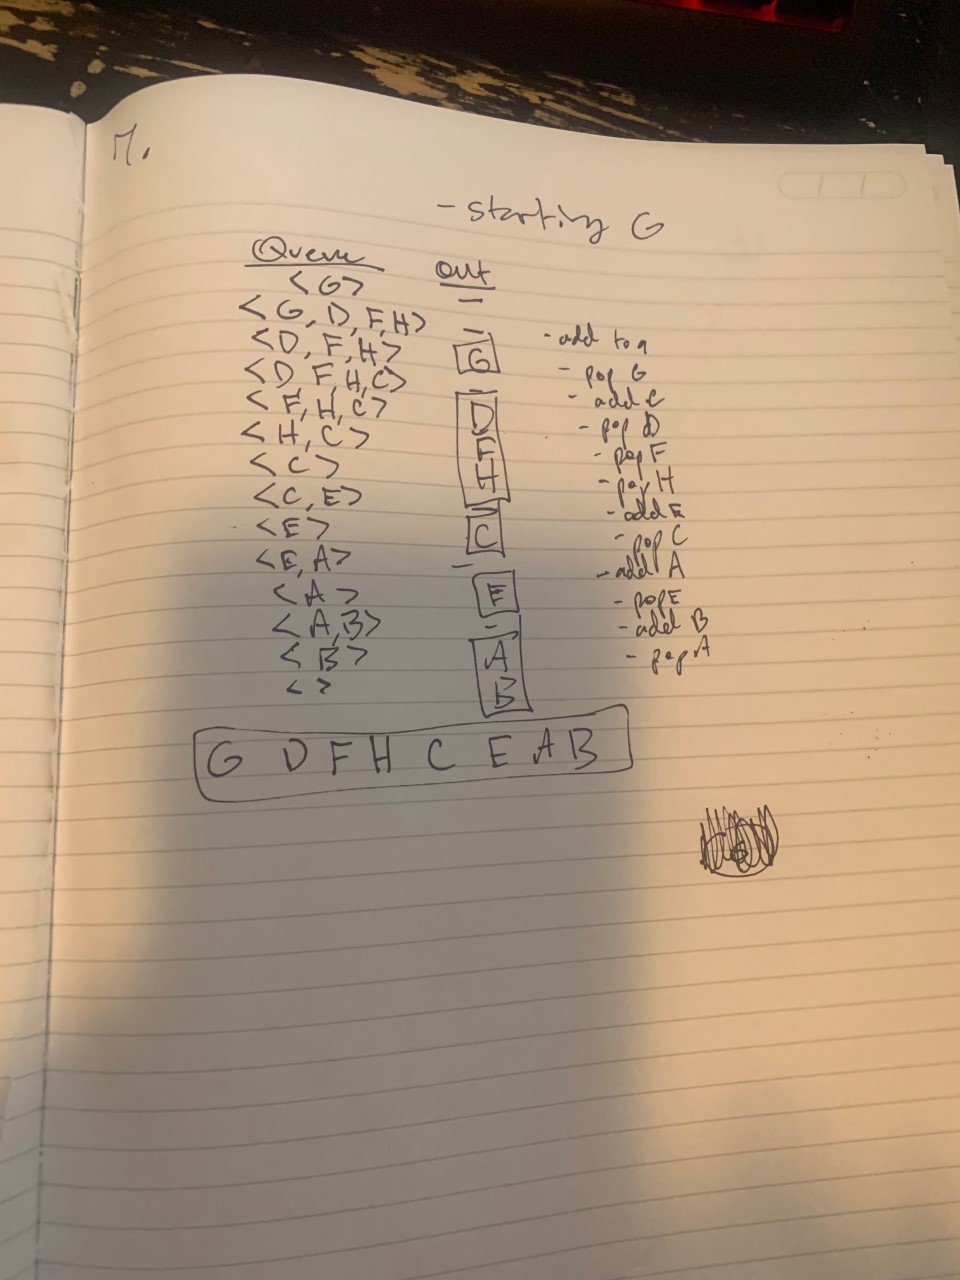 7.
- starting G
Queue out
<G> -
<G, D, F, H> - - add to q
<D, F, H> G - pop G
<D, F, H, C> - - add C
<F, H, C> D - pop D
<H, C> F - pop F
<C> H - pop H
<C, E> - - add E
<E> C - pop C
<E, A> - - add A
<A> E - pop E
<A, B> - - add B
<B> A - pop A
< > B
G D F H C E A B